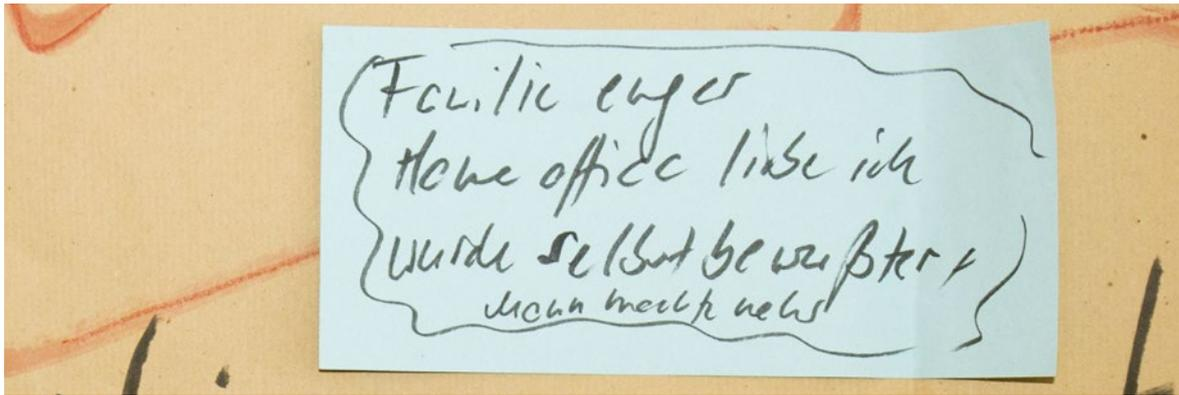 Familie enger
Home office liebe ich
wurde selbstbewußter +
Mann machte mehr